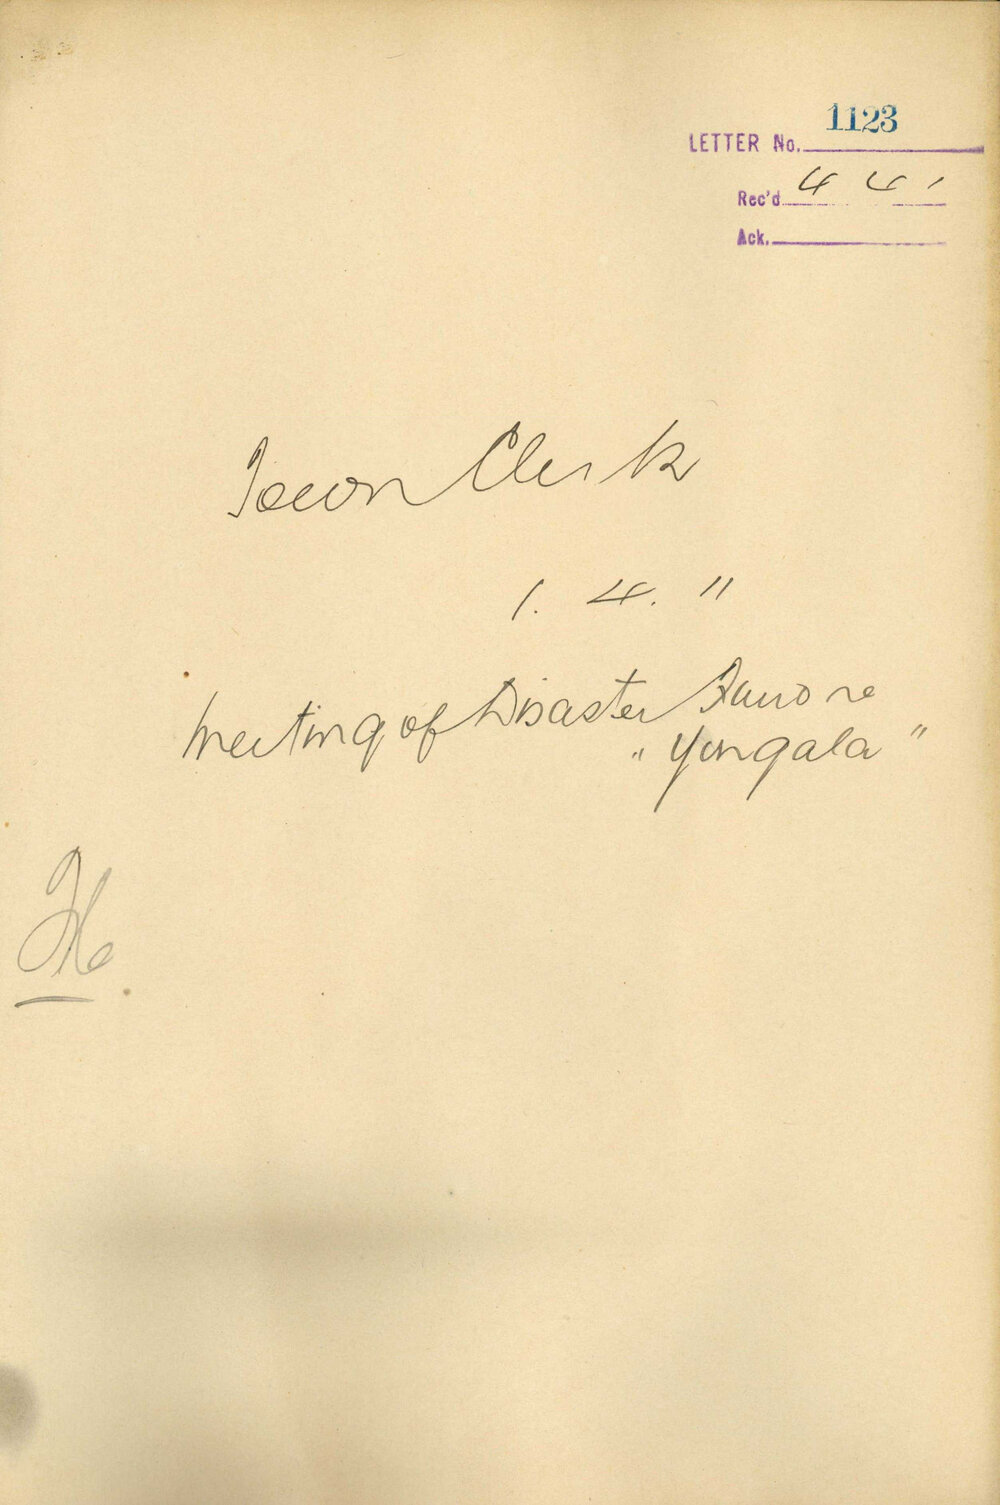 LETTER No. 1123
Rec'd 4 4 1
Ack.
Town Clerk
1. 4. 11
Meeting of Disaster Fund re
"Yongala"